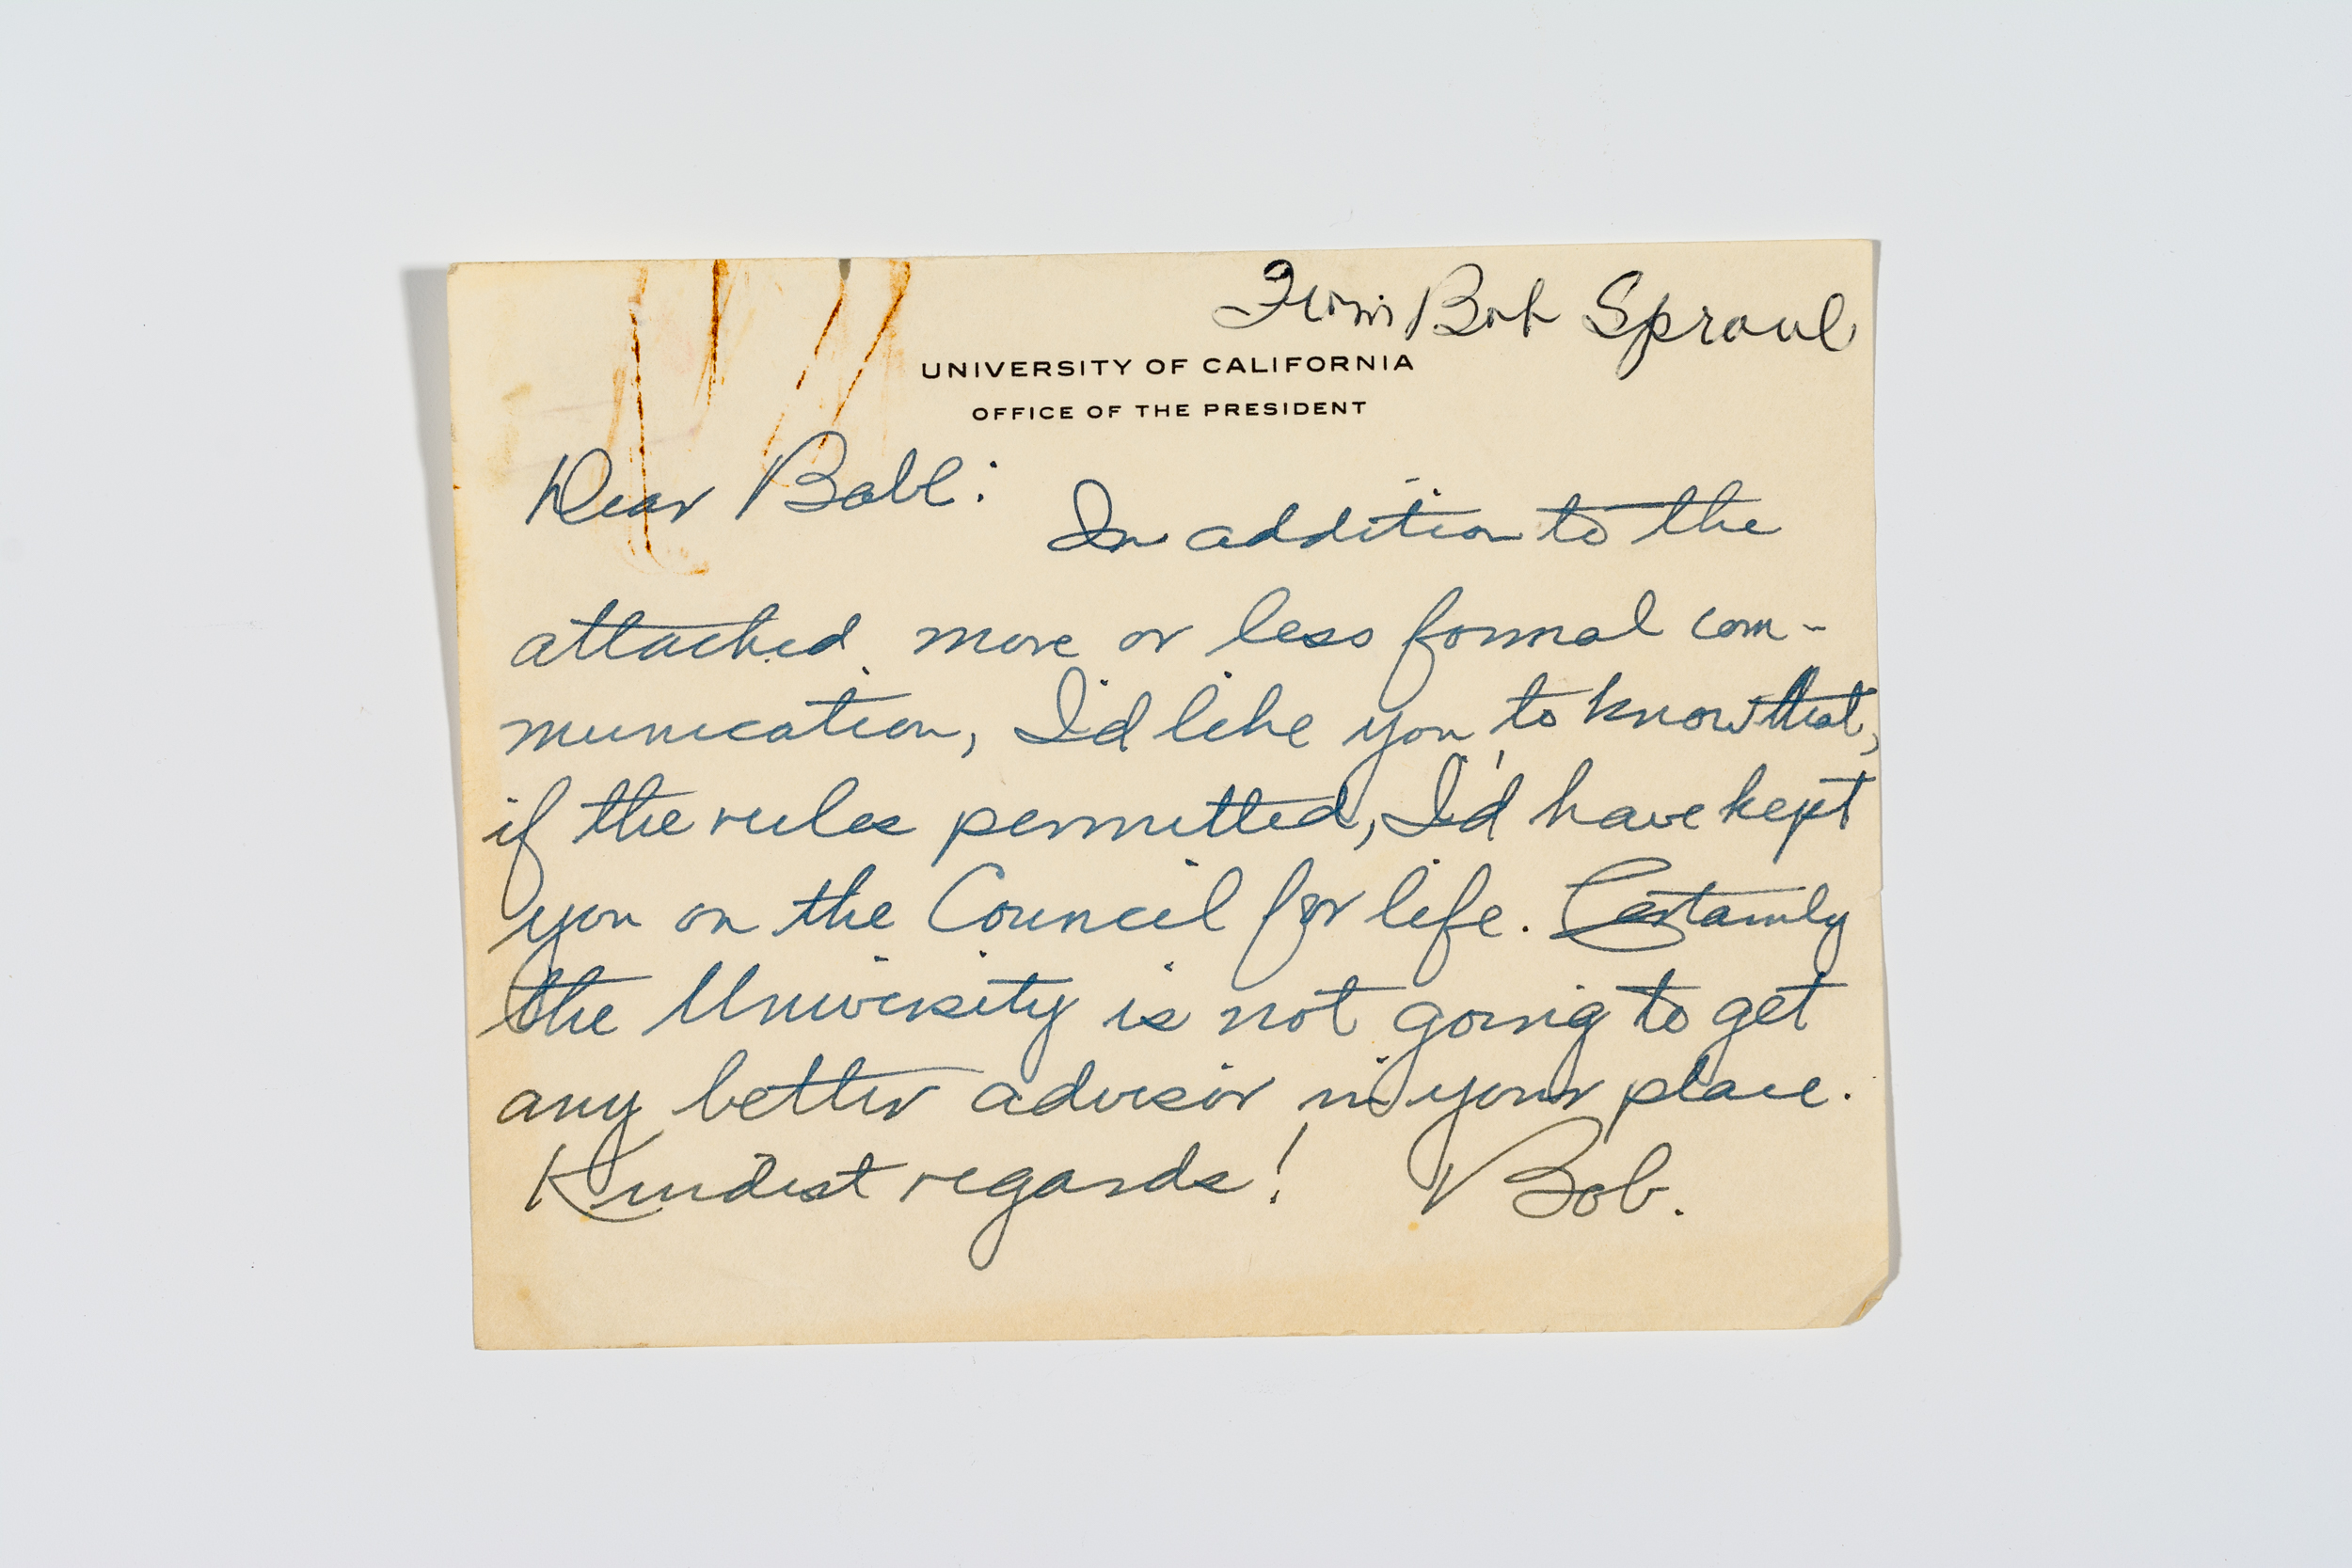 From Bob Sproul
UNIVERSITY OF CALIFORNIA
OFFICE OF THE PRESIDENT
Dear Babe:
In addition to the
attached more or less formal com-
munication, I'd like you to know that,
if the rules permitted, I'd have kept
you on the Council for life. Certainly
the University is not going to get
any better advisor in your place.
Kindest regards! Bob.